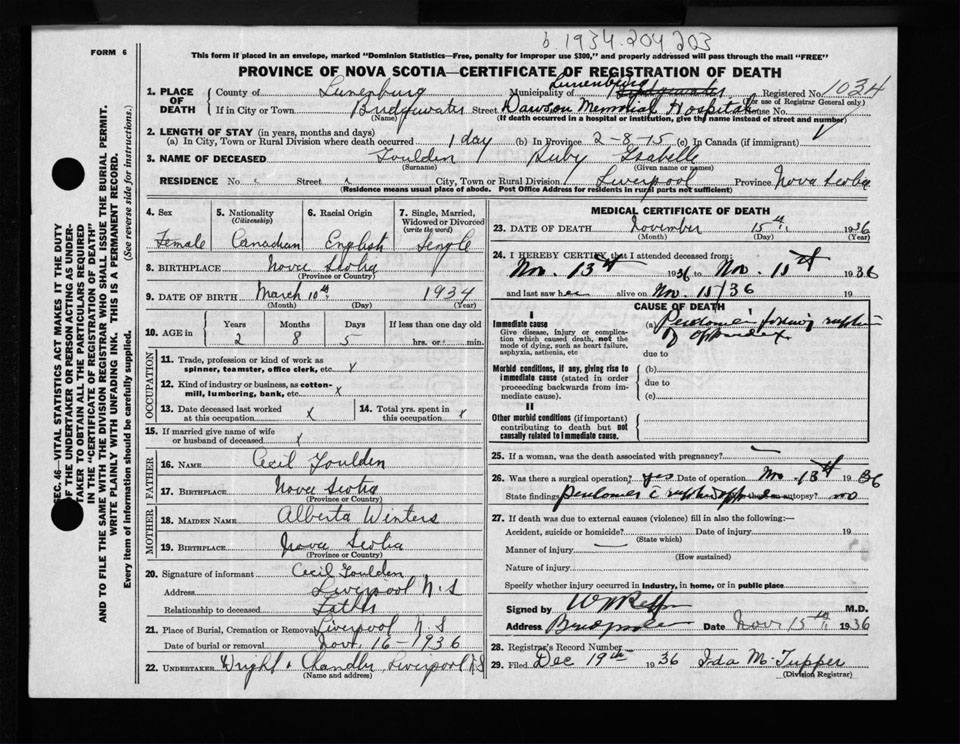 b. 1934. 204 203
FORM 6
This form if placed in an envelope, marked "Dominion Statistics—Free, penalty for improper use $300," and properly addressed will pass through the mail "FREE"
PROVINCE OF NOVA SCOTIA—CERTIFICATE OF REGISTRATION OF DEATH
SEC. 46—VITAL STATISTICS ACT MAKES IT THE DUTY
OF THE UNDERTAKER OR PERSON ACTING AS UNDER-
TAKER TO OBTAIN ALL THE PARTICULARS REQUIRED
IN THE "CERTIFICATE OF REGISTRATION OF DEATH"
AND TO FILE THE SAME WITH THE DIVISION REGISTRAR WHO SHALL ISSUE THE BURIAL PERMIT.
WRITE PLAINLY WITH UNFADING INK. THIS IS A PERMANENT RECORD.
Every item of information should be carefully supplied. (See reverse side for instructions.)
1. PLACE OF DEATH County of Lunenburg Municipality of Lunenburg Registered No. 1034
(For use of Registrar General only)
If in City or Town Bridgewater Street Dawson Memorial Hospital House No.
(Name) (If death occurred in a hospital or institution, give the name instead of street and number)
2. LENGTH OF STAY (in years, months and days)
(a) In City, Town or Rural Division where death occurred 1 day (b) In Province 2-8-15 (c) In Canada (if immigrant)
3. NAME OF DECEASED Isabelle
(Surname) (Given name or names)
RESIDENCE No. Street City, Town or Rural Division Liverpool Province Nova Scotia
(Residence means usual place of abode. Post Office Address for residents in rural parts not sufficient)
4. Sex Female
5. Nationality (Citizenship) Canadian
6. Racial Origin English
7. Single, Married, Widowed or Divorced (write the word) Single
8. BIRTHPLACE Nova Scotia
(Province or Country)
9. DATE OF BIRTH March 10th 1934
(Month) (Day) (Year)
10. AGE in Years 2 Months 8 Days 5 If less than one day old hrs. or min.
OCCUPATION
11. Trade, profession or kind of work as spinner, teamster, office clerk, etc.
12. Kind of industry or business, as cotton-mill, lumbering, bank, etc. x
13. Date deceased last worked at this occupation x
14. Total yrs. spent in this occupation x
15. If married give name of wife or husband of deceased
FATHER
16. NAME Cecil
17. BIRTHPLACE Nova Scotia
(Province or Country)
MOTHER
18. MAIDEN NAME Alberta Winters
19. BIRTHPLACE Nova Scotia
(Province or Country)
20. Signature of informant Cecil
Address Liverpool N.S
Relationship to deceased Father
21. Place of Burial, Cremation or Removal Liverpool N.S
Date of burial or removal Nov. 16-1936
22. UNDERTAKER Wright & Chandler Liverpool N.S
(Name and address)
MEDICAL CERTIFICATE OF DEATH
23. DATE OF DEATH November 15th 1936
(Month) (Day) (Year)
24. I HEREBY CERTIFY that I attended deceased from:
Nov. 13th 1936 to Nov. 15th 1936
and last saw her alive on Nov. 15/36 19
CAUSE OF DEATH
I
Immediate cause
Give disease, injury or complication which caused death, not the mode of dying, such as heart failure, asphyxia, asthenia, etc
(a)
of appendix
due to
Morbid conditions, if any, giving rise to immediate cause (stated in order proceeding backwards from immediate cause).
(b)
due to
(c)
II
Other morbid conditions (if important) contributing to death but not causally related to immediate cause.
25. If a woman, was the death associated with pregnancy? —
26. Was there a surgical operation? yes Date of operation Nov 13th 1936
State findings autopsy? no
27. If death was due to external causes (violence) fill in also the following:—
Accident, suicide or homicide? Date of injury 19
(State which)
Manner of injury —
(How sustained)
Nature of injury
Specify whether injury occurred in industry, in home, or in public place
Signed by M.D.
Address Date Nov 15th 1936
28. Registrar's Record Number —
29. Filed Dec 19th 1936 Ida M. Tupper
(Division Registrar)